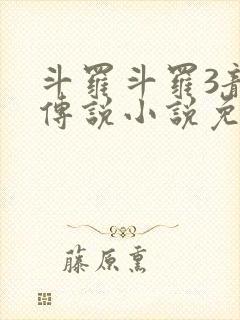 斗罗斗罗3龍
傳說小說免
藤原熏